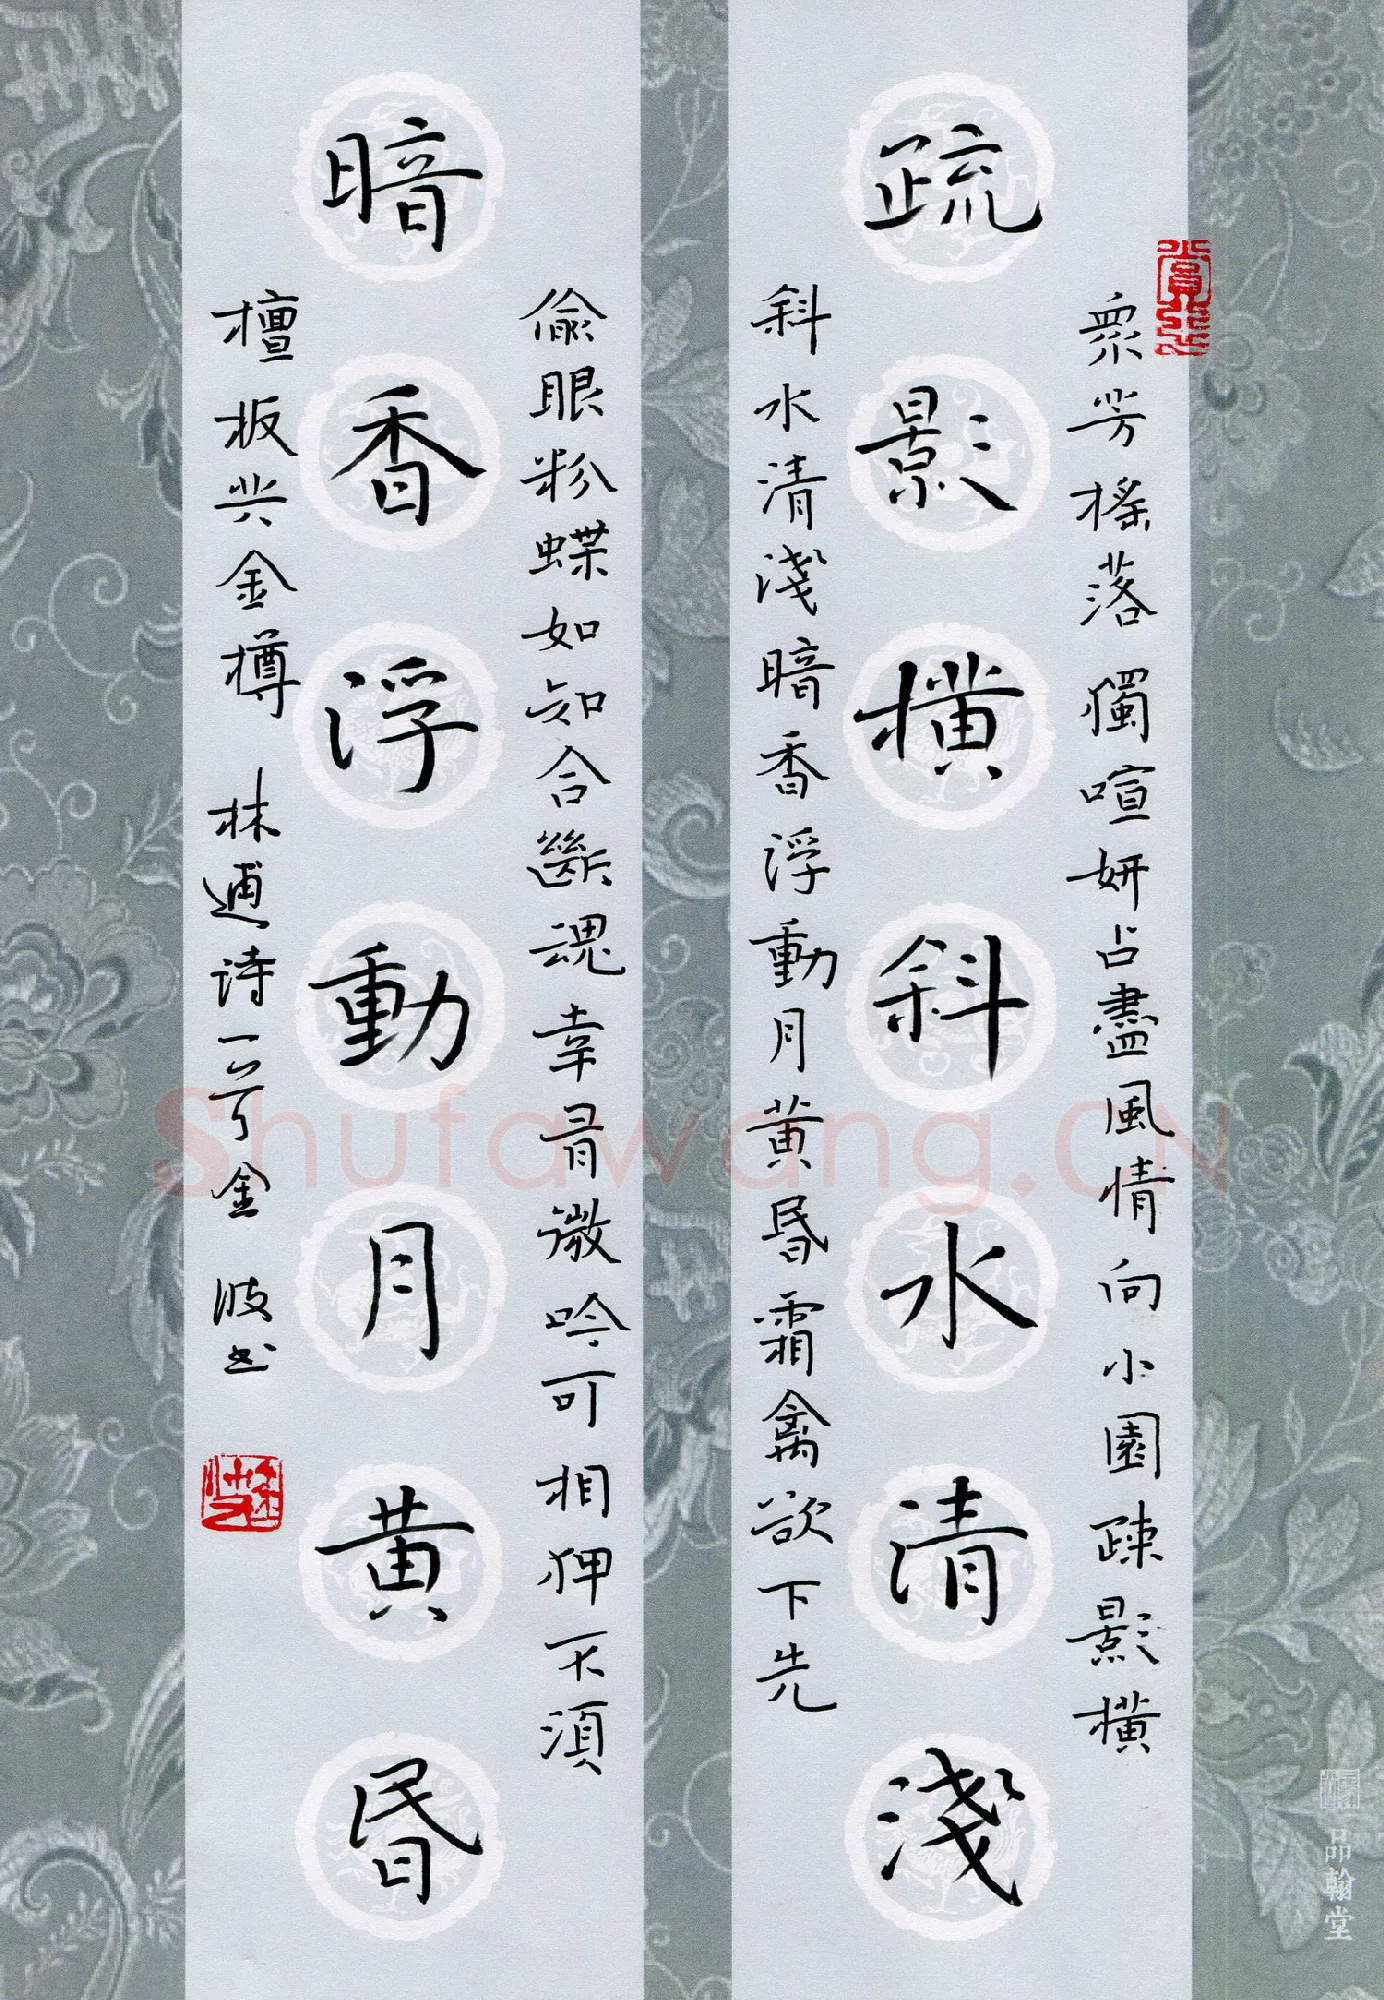 疏影橫斜水清淺
眾芳搖落獨喧妍占盡風情向小園疎影橫
斜水清淺暗香浮動月黃昏霜禽欲下先
暗香浮動月黃昏
偷眼粉蝶如知合斷魂幸有微吟可相狎不須
檀板共金樽 林逋诗一首金波书
Shufawang.CN
品翰堂